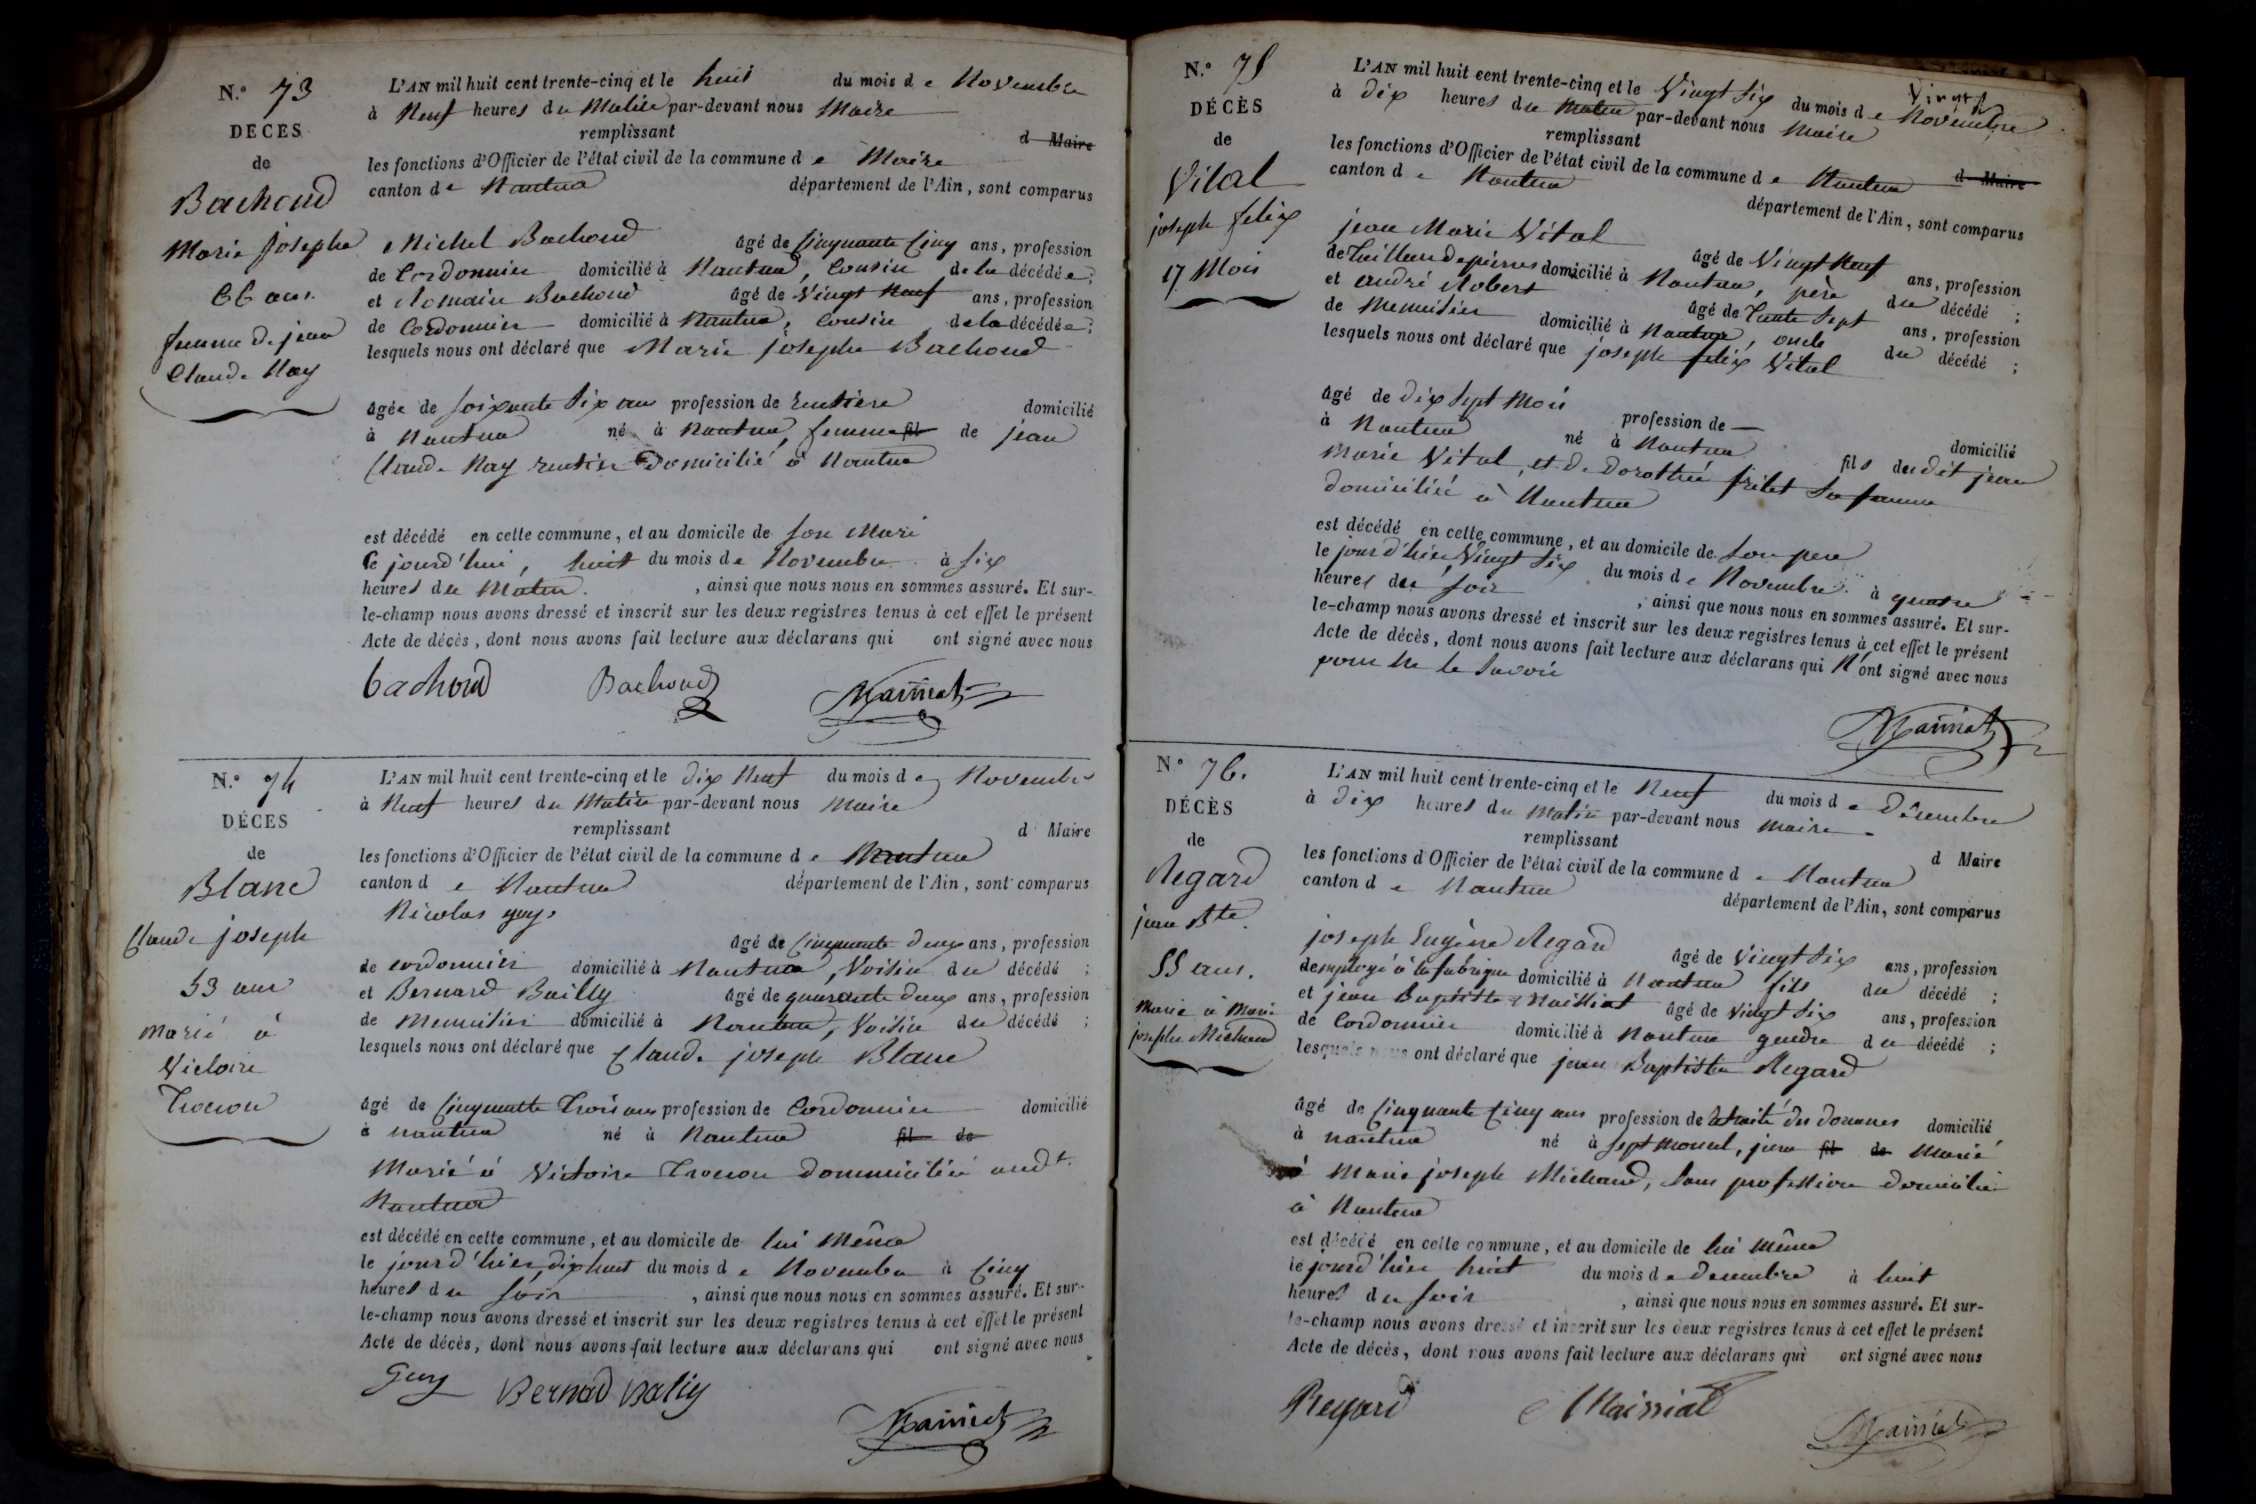 N.° 73
DÉCES
de
Bachoud
Marie Josephe
66 ans.
femme de jean
Claude Nay
L'AN mil huit cent trente-cinq et le huit du mois de Novembre
à Neuf heures du Matin par-devant nous Maire
remplissant d Maire
les fonctions d'Officier de l'état civil de la commune de Maire
canton de Nantua département de l'Ain, sont comparus
Michel Bachoud âgé de Cinquante Cinq ans, profession
de Cordonnier domicilié à Nantua, Cousin de la décédée;
et Romain Bachoud âgé de Vingt Neuf ans, profession
de Cordonnier domicilié à Nantua, Cousin de la décédée;
lesquels nous ont déclaré que Marie josephe Bachoud
âgée de soixante six ans profession de Rentière domicilié
à Nantua né à Nantua, femme fil de jean
Claude Nay rentier Domicilié à Nantua
est décédé en cette commune, et au domicile de son Mari
Ce jourd'hui, huit du mois de Novembre à six
heures du Matin. , ainsi que nous nous en sommes assuré. Et sur-
le-champ nous avons dressé et inscrit sur les deux registres tenus à cet effet le présent
Acte de décès, dont nous avons fait lecture aux déclarans qui ont signé avec nous
bachoud Bachoud
N.° 74
DÉCES
de
Blanc
Claude joseph
53 ans
marié à
Victoire
L'AN mil huit cent trente-cinq et le dix Neuf du mois de Novembre
à Neuf heures du Matin par-devant nous Maire
remplissant d Maire
les fonctions d'Officier de l'état civil de la commune de Nantua
canton de Nantua département de l'Ain, sont comparus
Nicolas guy,
âgé de Cinquante deux ans, profession
de cordonnier domicilié à Nantua, Voisin du décédé ;
et Bernard Bailly âgé de quarante deux ans, profession
de Menuisier domicilié à Nantua, Voisin du décédé ;
lesquels nous ont déclaré que Claude joseph Blanc
âgé de Cinquante Trois ans profession de Cordonnier domicilié
à nantua né à Nantua fil de
Marié à Victoire domiciliée audt.
Nantua
est décédé en cette commune, et au domicile de lui Même
le jourd'hier, dix huit du mois de Novembre à Cinq
heures du soir , ainsi que nous nous en sommes assuré. Et sur-
le-champ nous avons dressé et inscrit sur les deux registres tenus à cet effet le présent
Acte de décès, dont nous avons fait lecture aux déclarans qui ont signé avec nous
Guy Bernad Baliy
N.° 75
DÉCÈS
de
Vital
joseph felix
17 Mois
L'AN mil huit cent trente-cinq et le Vingt Six du mois de Novembre
à dix heures du Matin par-devant nous Maire
remplissant d Maire
les fonctions d'Officier de l'état civil de la commune de Nantua
canton de Nantua département de l'Ain, sont comparus
jean Marie Vital âgé de Vingt Neuf ans, profession
de Tailleur de pierres domicilié à Nantua, père du décédé ;
et andré Robert âgé de Trente Sept ans, profession
de Menuisier domicilié à Nantua, oncle du décédé ;
lesquels nous ont déclaré que joseph felix Vital
âgé de dix sept Mois profession de — domicilié
à Nantua né à Nantua fils du dit jean
Marie Vital, et de Dorothée frilet sa femme
domiciliée à Nantua
est décédé en cette commune, et au domicile de son pere
le jourd'hier Vingt Six du mois de Novembre à quatre
heures du soir , ainsi que nous nous en sommes assuré. Et sur-
le-champ nous avons dressé et inscrit sur les deux registres tenus à cet effet le présent
Acte de décès, dont nous avons fait lecture aux déclarans qui N'ont signé avec nous
pour Ne le savoir
N° 76.
DÉCÈS
de
Regard
jean Bte.
55 ans.
Marié à Marie
josephe Michaud
L'AN mil huit cent trente-cinq et le Neuf du mois de Décembre
à dix heures du Matin par-devant nous Maire
remplissant d Maire
les fonctions d'Officier de l'état civil de la commune de Nantua
canton de Nantua département de l'Ain, sont comparus
joseph Eugène Regard âgé de Vingt Six ans, profession
d'employé à la fabrique domicilié à Nantua fils du décédé ;
et jean Baptiste Maissiat âgé de Vingt Six ans, profession
de Cordonnier domicilié à Nantua gendre du décédé ;
lesquels nous ont déclaré que jean Baptiste Regard
âgé de Cinquante Cinq ans profession de retraité des douanes domicilié
à nantua né à Septmoncel, jura fil de Marié
à Marie joseph Michaud, sans profession domiciliée
à Nantua
est décédé en cette commune, et au domicile de lui même
le jourd'hier huit du mois de decembre à huit
heures du soir , ainsi que nous nous en sommes assuré. Et sur-
le-champ nous avons dressé et inscrit sur les deux registres tenus à cet effet le présent
Acte de décès, dont nous avons fait lecture aux déclarans qui ont signé avec nous
Regard Maissiat